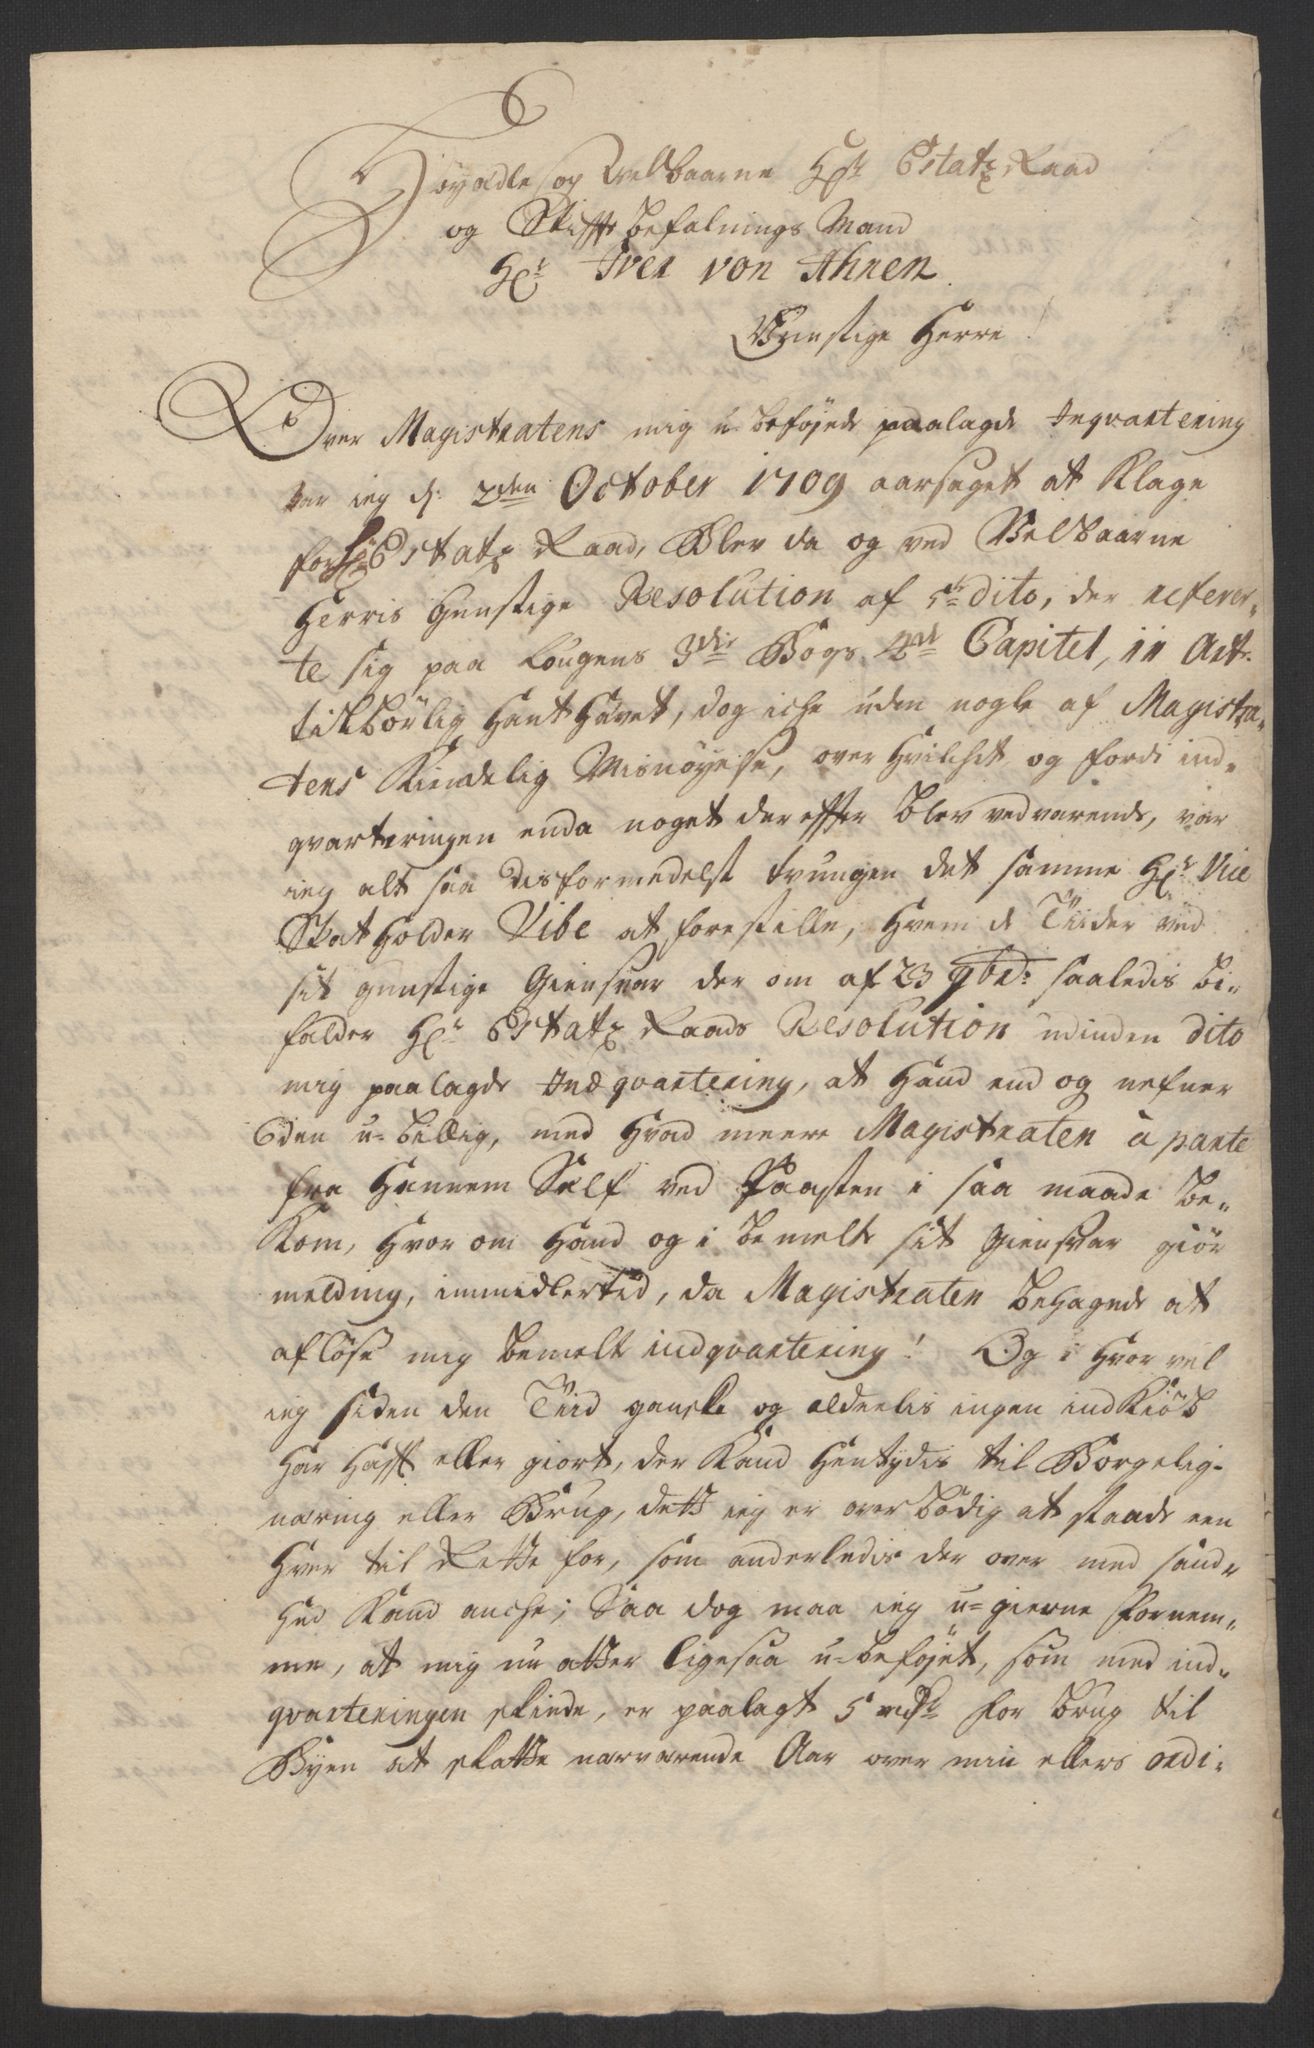 Høyædle og Velbaarne Hr: Estatz Raad
og Stiffts Befalnings Mand
Hr: Iver von Ahnen
Gunstige Herre!
Over Magistratens mig u-beføjede paalagde Inqvartering
var ieg d: 2den October 1709 aarsaget at Klage
for Hr: Estatz Raad, Blev da og ved Velbaarne
Herris Gunstige Resolution af 5te dito, der referer-
te sig paa Lougens 3die Bogs 4de Capitel, 11 Art:
tilbørlig Hant Hævet, dog iche uden nogle af Magistra-
tens Kiendelig Misnøyelse, over Hvilchet og fordi ind-
qvarteringen enda noget der effter blev vedvarende, var
ieg alt saa desformedelst tvungen det samme Hr: Vice
Stat Holder Vibe at forestille, Hvem de Tiider ved
sit gunstige Giensvar der om af 23 9br: saaledis bi-
falder Hr: Estatz Raads Resolution udinden dito
mig paalagde Indqvartering, at Hand end og nefner
den u-billig, med Hvad meere Magistraten à parte
fra Hannem Self ved Paasten i saa maade be-
Kom, Hvor om Hand og i bemelte sit Giensvar giør
melding, immidlertid, da Magistraten behagede at
afløse mig bemelte indqvartering! Og i Hvor vel
ieg siden den Tiid ganske og aldeelis ingen ind Kiøb
Har Hafft eller giort, der Kand Hentydis til Borgelig-
næring eller Brug, dette ieg er overbødig at staade een
Hver til Rette for, som anderledis der over med sand-
Hed Kand anche; Saa dog maa ieg u-gierne fornem-
me, at mig nu atter ligesaa u-beføjet, som med ind-
qvarteringen skeede, er paalagt 5 rdr for brug til
Byen at skatte nærværende Aar over min ellers ordi-